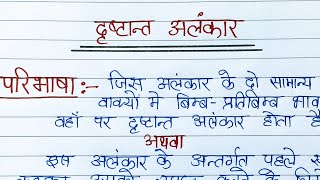 दृष्टान्त अलंकार
परिभाषा:- जिस अलंकार के दो सामान्य
वाक्यों में बिम्ब-प्रतिबिम्ब भाव
वहाँ पर दृष्टान्त अलंकार होता है
अथवा
इस अलंकार के अन्तर्गत पहले